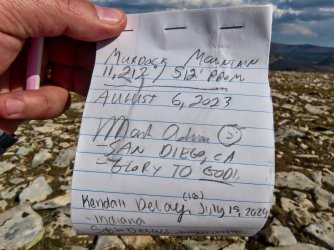 MURDOCK MOUNTAIN
11,212' / 512' PROM.
AUGUST 6, 2023
Mark
SAN DIEGO, CA
- GLORY TO GOD!
Kendall DeLay, (18) July 19, 2024
- Indiana